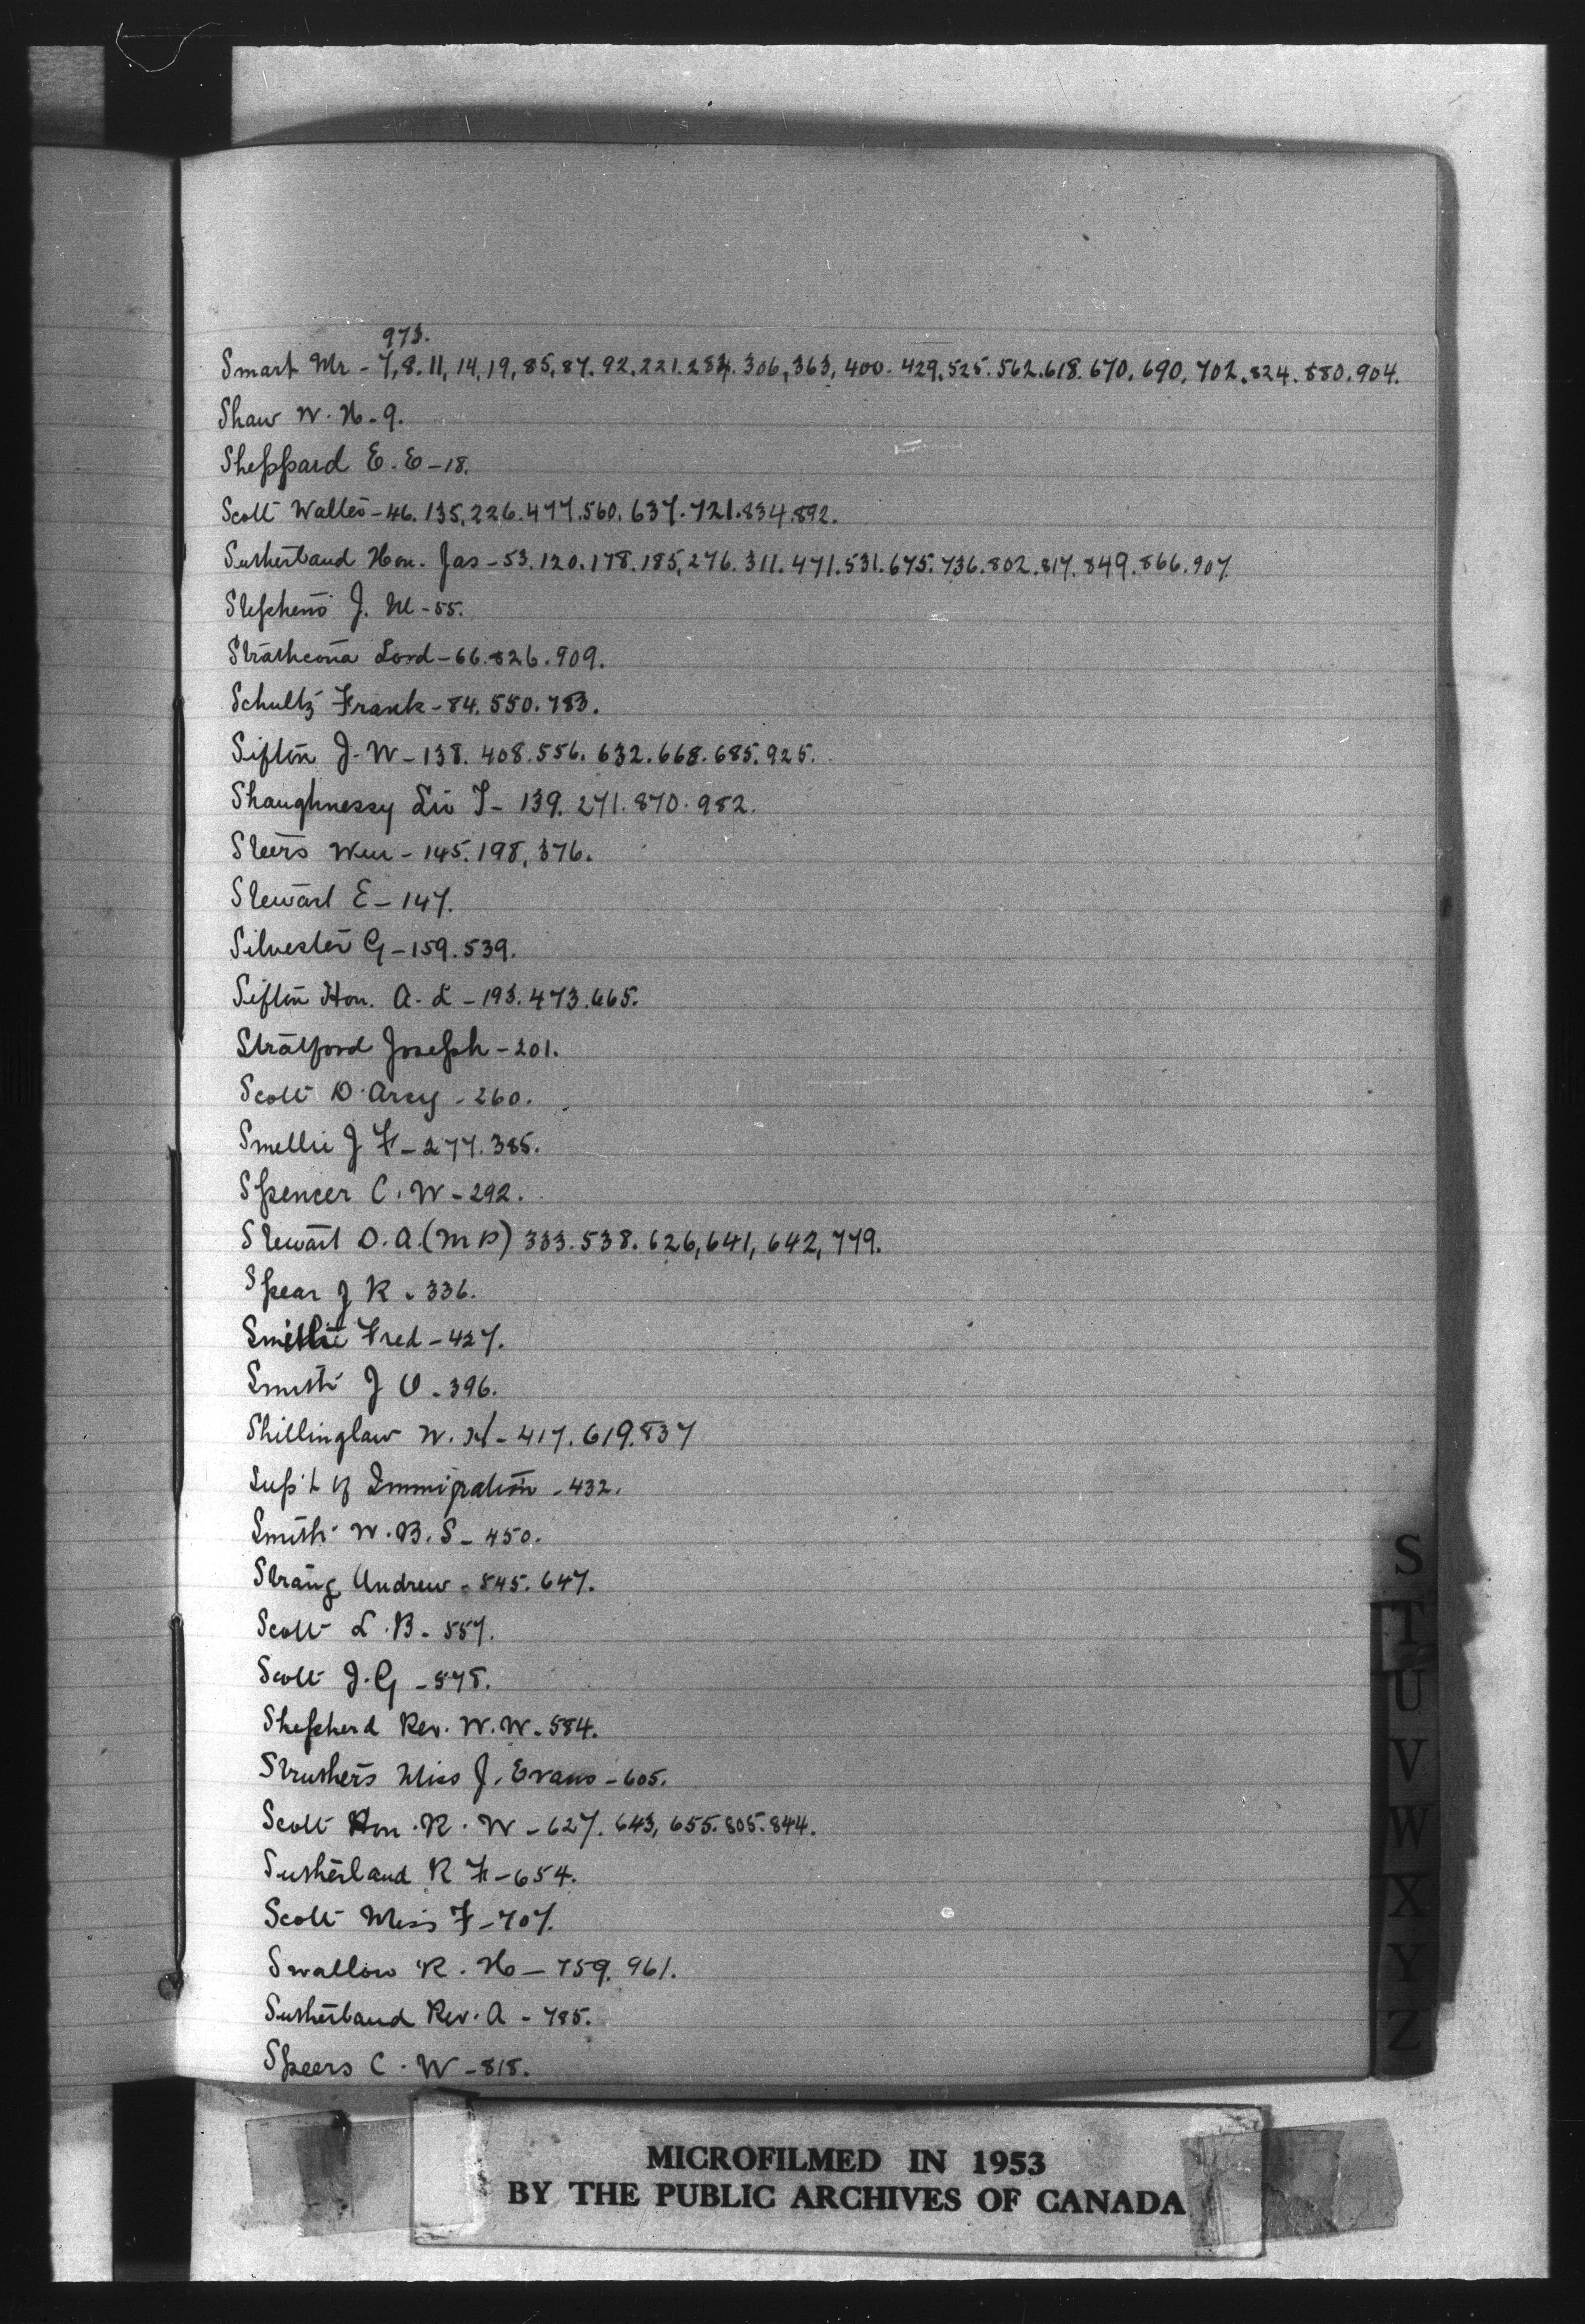 973.
Smart Mr - 7, 8. 11, 14, 19, 85, 87. 92, 221. 284. 306, 363, 400. 429. 525. 562. 618. 670. 690. 702. 824. 880. 904.
Shaw W. H. - 9.
Sheppard E. E - 18.
Scott Walter - 46. 135, 226. 477. 560. 637. 721. 834. 892.
Sutherland Hon. Jas - 53. 120. 178. 185, 276. 311. 471. 531. 675. 736. 802. 817. 849. 866. 907.
Stephens J. M - 55.
Strathcona Lord - 66. 826. 909.
Schultz Frank - 84. 550. 783.
Sifton J. W - 138. 408. 556. 632. 668. 685. 925.
Shaughnessy Sir T - 139. 271. 870. 982.
Steers Wm - 145. 198, 376.
Stewart E - 147.
Silvester G - 159. 539.
Sifton Hon. A. L - 193. 473. 665.
Stratford Joseph - 201.
Scott D'Arcy - 260.
Smellie J F - 277. 385.
Spencer C. W - 292.
Stewart D. A. (M P) 333. 538. 626, 641, 642, 779.
Spear J R - 336.
Fred - 427.
Smith J O - 396.
Shillinglaw W. H - 417. 619. 837
Sup't of Immigration - 432.
Smith W. B. S - 450.
Strang Andrew - 545. 647.
Scott L. B - 557.
Scott J. G - 578.
Shepherd Rev. W. W - 584.
Struthers Miss J. Evans - 605.
Scott Hon. R. W - 627. 643, 655. 805. 844.
Sutherland R F - 654.
Scott Miss F - 707.
Swallow R. H - 759. 961.
Sutherland Rev. A - 785.
Speers C. W - 818.
S
T
U
V
W
X
Y
Z
MICROFILMED IN 1953
BY THE PUBLIC ARCHIVES OF CANADA